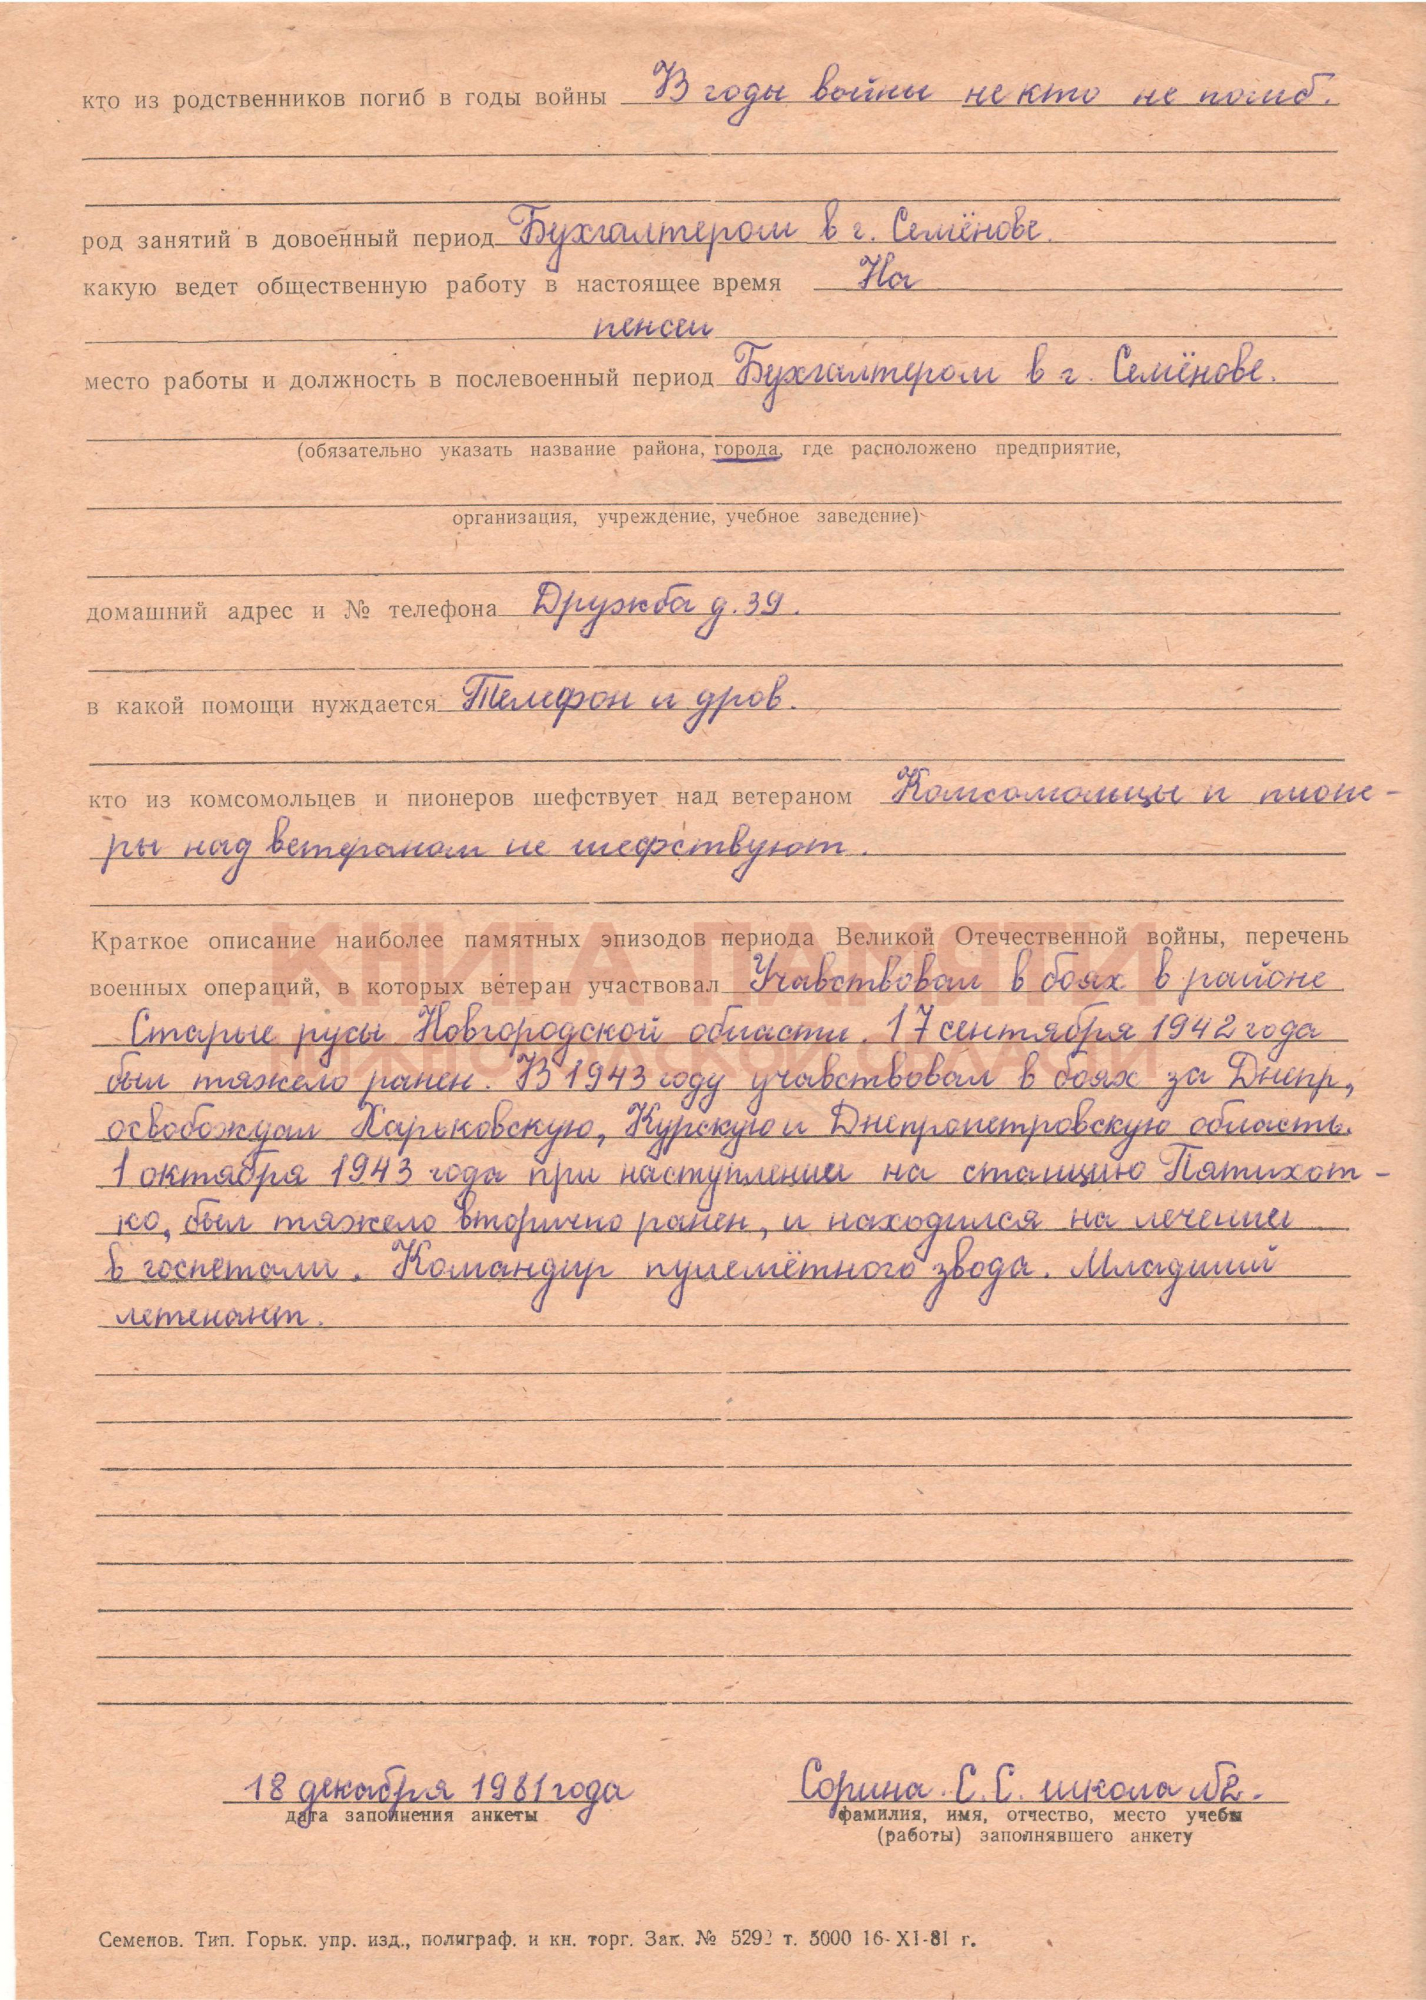 кто из родственников погиб в годы войны В годы войны не кто не погиб.
род занятий в довоенный период Бухгалтером в г. Семёнове.
какую ведет общественную работу в настоящее время На
пенсеи
место работы и должность в послевоенный период Бухгалтером в г. Семёнове.
(обязательно указать название района, города, где расположено предприятие,
организация, учреждение, учебное заведение)
домашний адрес и № телефона Дружба д. 39.
в какой помощи нуждается Телефон и дров.
кто из комсомольцев и пионеров шефствует над ветераном Комсомольцы и пионе-
ры над ветераном не шефствуют.
КНИГА ПАМЯТИ
Краткое описание наиболее памятных эпизодов периода Великой Отечественной войны, перечень
военных операций, в которых ветеран участвовал Учавствовал в боях в районе
Старые русы Новгородской области. 17 сентября 1942 года
НИЖЕГОРОДСКОЙ ОБЛАСТИ
был тяжело ранен. В 1943 году учавствовал в боях за Днепр,
освобождал Харьковскую, Курскую и Днепропетровскую область.
1 октября 1943 года при наступлении на станцию Пятихот-
ко, был тяжело вторично ранен, и находился на лечении
в госпетали. Командир пулемётного звода. Младший
летенант.
18 декабря 1981 года Сорина С. С. школа №2.
дата заполнения анкеты фамилия, имя, отчество, место учебы
(работы) заполнявшего анкету
Семенов. Тип. Горьк. упр. изд., полиграф. и кн. торг. Зак. № 5292 т. 5000 16-XI-81 г.